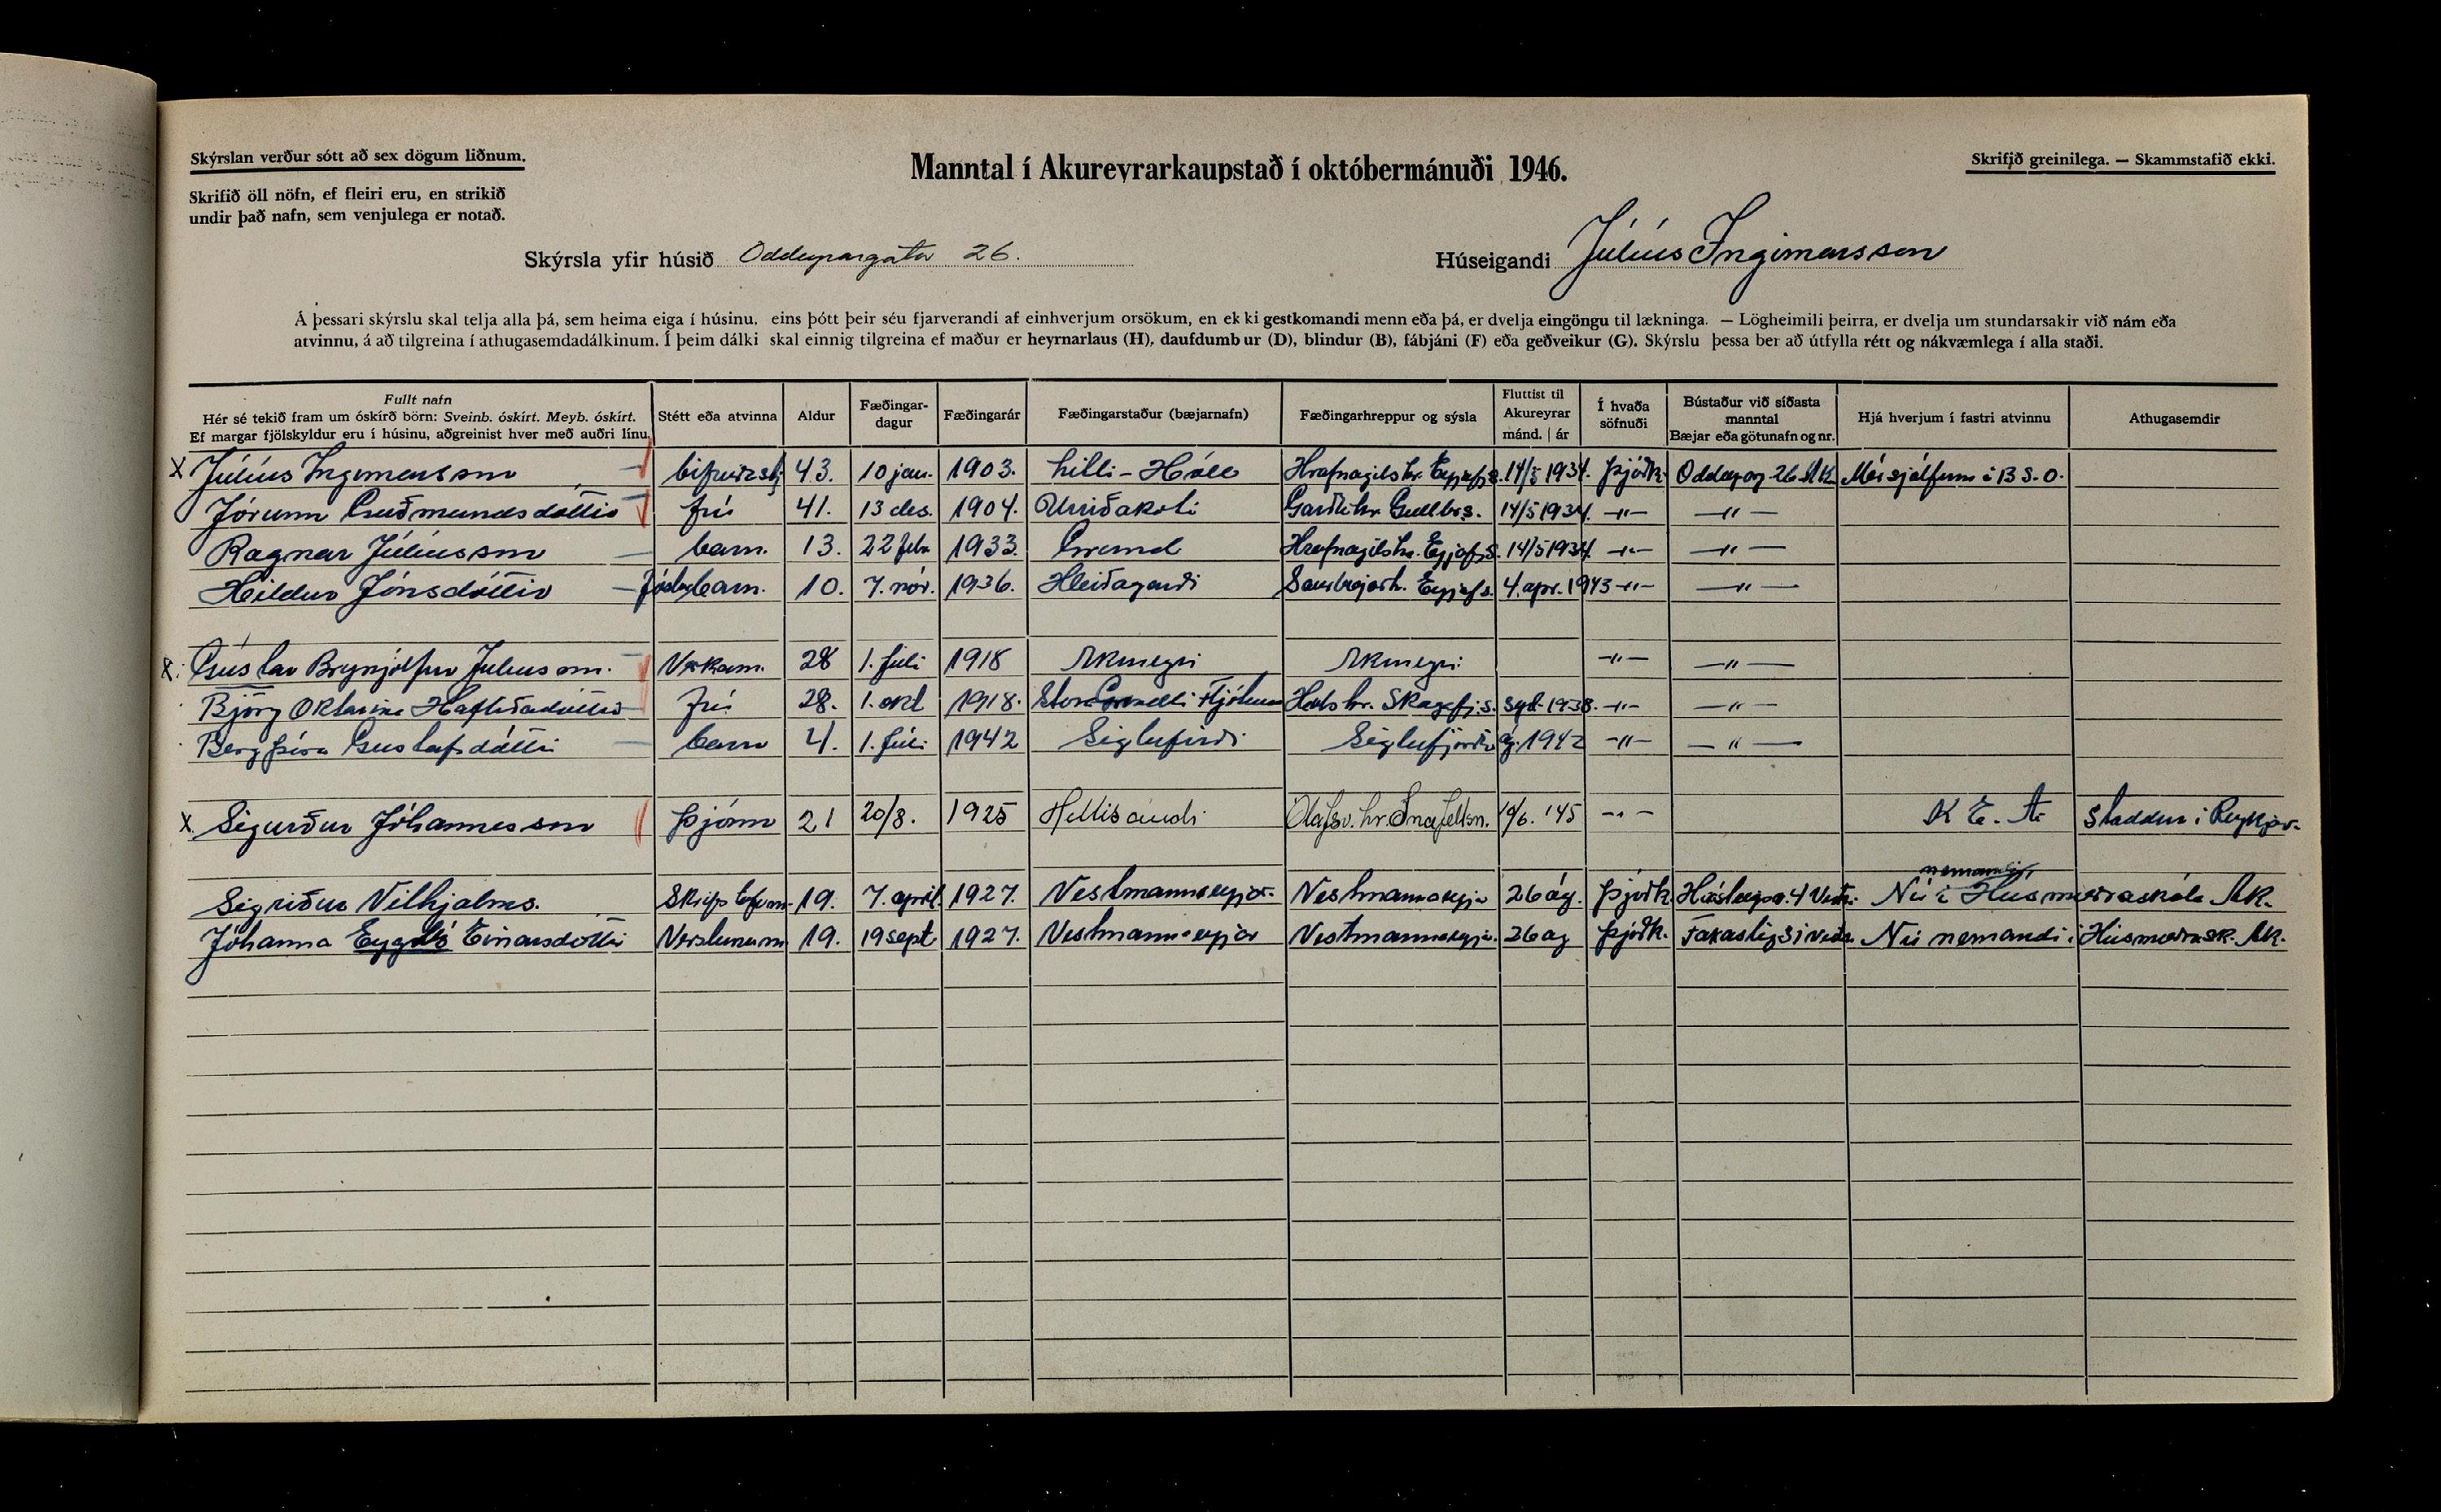 Skýrslan verður sótt að sex dögum liðnum.
Manntal í Akureyrarkaupstað í októbermánuði 1946.
Skrifið greinilega. — Skammstafið ekki.
Skrifið öll nöfn, ef fleiri eru, en strikið
undir það nafn, sem venjulega er notað.
Skýrsla yfir húsið Oddeyrargata 26.
Húseigandi Júlíus Ingimarsson
Á þessari skýrslu skal telja alla þá, sem heima eiga í húsinu, eins þótt þeir séu fjarverandi af einhverjum orsökum, en ekki gestkomandi menn eða þá, er dvelja eingöngu til lækninga. — Lögheimili þeirra, er dvelja um stundarsakir við nám eða
atvinnu, á að tilgreina í athugasemdadálkinum. Í þeim dálki skal einnig tilgreina ef maður er heyrnarlaus (H), daufdumbur (D), blindur (B), fábjáni (F) eða geðveikur (G). Skýrslu þessa ber að útfylla rétt og nákvæmlega í alla staði.
Fullt nafn
Hér sé tekið fram um óskírð börn: Sveinb. óskírt. Meyb. óskírt.
Ef margar fjölskyldur eru í húsinu, aðgreinist hver með auðri línu.
Stétt eða atvinna
Aldur
Fæðingar-
dagur
Fæðingarár
Fæðingarstaður (bæjarnafn)
Fæðingarhreppur og sýsla
Fluttist til
Akureyrar
mánd. | ár
Í hvaða
söfnuði
Bústaður við síðasta
manntal
Bæjar eða götunafn og nr.
Hjá hverjum í fastri atvinnu
Athugasemdir
X Júlíus Ingimarsson bifreiðastj 43. 10 jan. 1903. Litli-Hóll Hrafnagilshr. Eyjafjs. 14/5 1934. Þjóðk. Oddeyrg. 26 Ak Mér sjálfum í B.S.O.
Jórunn Guðmundsdóttir frú 41. 13 des. 1904. Urriðakoti Garðahr. Gullbrs. 14/5 1934. -"- -"-
Ragnar Júlíusson barn. 13. 22 febr 1933. Grund Hrafnagilshr. Eyjafjs. 14/5 1934. -"- -"-
Hildur Jónsdóttir fósturbarn. 10. 7. nóv. 1936. Hleiðagarði Saurbæjarh. Eyjafs. 4. apr. 1943 -"- -"-
X. Gústav Brynjólfur Júlíusson. Verkam. 28 1. júlí 1918 Akureyri Akureyri -"- -"-
Björg Oktavía Hafliðadóttir frú 28. 1. okt 1918. Fljótum Skagafj.s. 1938. -"- -"-
Bergþóra Gustafsdóttir barn 4. 1. júlí 1942 Siglufirði Siglufjörður ág. 1942 -"- -"-
X. Sigurður Jóhannesson Þjónn 21 20/8. 1925 Hellisandi Ólafsv. hr. Snæfellsn. '45 -"- K. E. A. Staddur í Reykjav.
Sigríður Vilhjálms. Skrifstofum. 19. 7. apríl 1927. Vestmannaeyjar. Vestmannaeyjar 26 ág. Þjóðk. Hásteinsv. 4 Vestm. Nú í nemandi, Húsmæðraskóla Ak.
Jóhanna Eygló Einarsdóttir Verslunarm 19. 19 sept. 1927. Vestmannaeyjar Vestmannaeyja. 26 ág Þjóðk. Faxastíg Nú nemandi í Húsmæðrask. Ak.